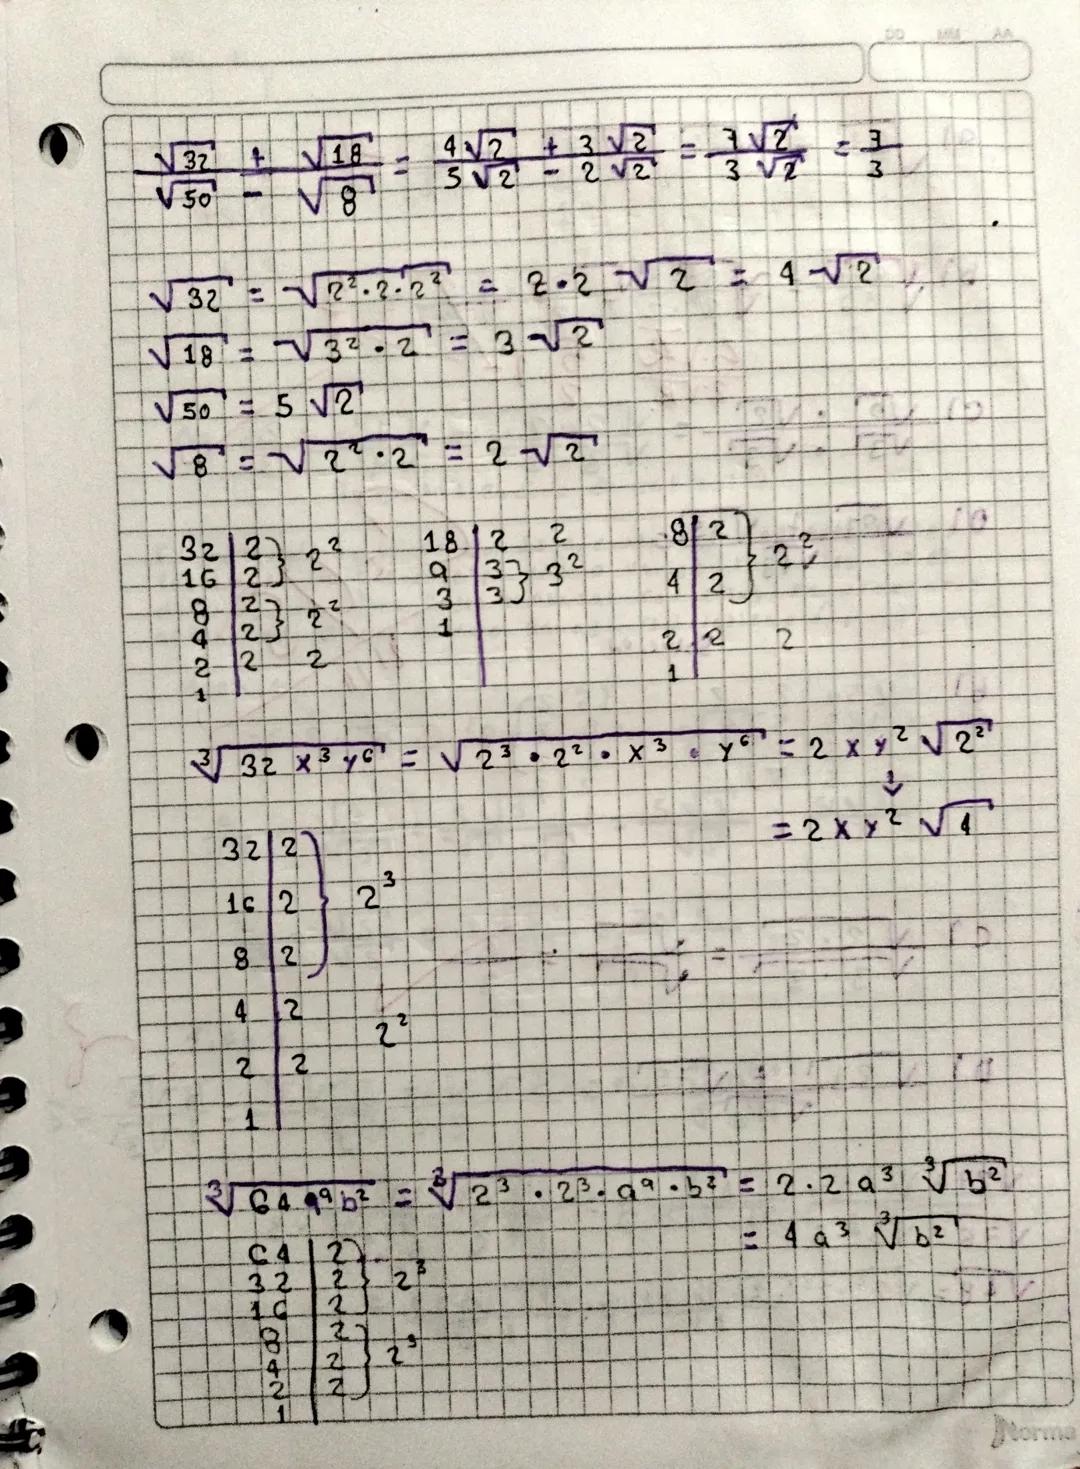 DD MM AA
√32 + √18 / √50 - √8 = 4√2 + 3√2 / 5√2 - 2√2 = 7√2 / 3√2 = 7/3
√32 = √2²·2·2² = 2·2 √2 = 4√2
√18 = √3²·2 = 3√2
√50 = 5√2
√8 = √2²·2 = 2√2
32 | 2 } 2² 18 | 2 2 8 | 2 } 2²
16 | 2 9 | 3 } 3² 4 | 2
8 | 2 } 2² 3 | 3
4 | 2 1 | 2 | 2 2
2 | 2 2 1 |
1 |
∛32 x³ y⁶ = √2³ · 2² · x³ · y⁶ = 2 x y² √2²
↓
= 2 x y² √4
32 | 2 } 2³
16 | 2
8 | 2
4 | 2 2²
2 | 2
1 |
∛64 a⁹ b² = ∛2³ · 2³ · a⁹ · b² = 2·2 a³ ∛b²
= 4 a³ ∛b²
64 | 2 } 2³
32 | 2
16 | 2
8 | 2 } 2³
4 | 2
2 | 2
1 |
Norma